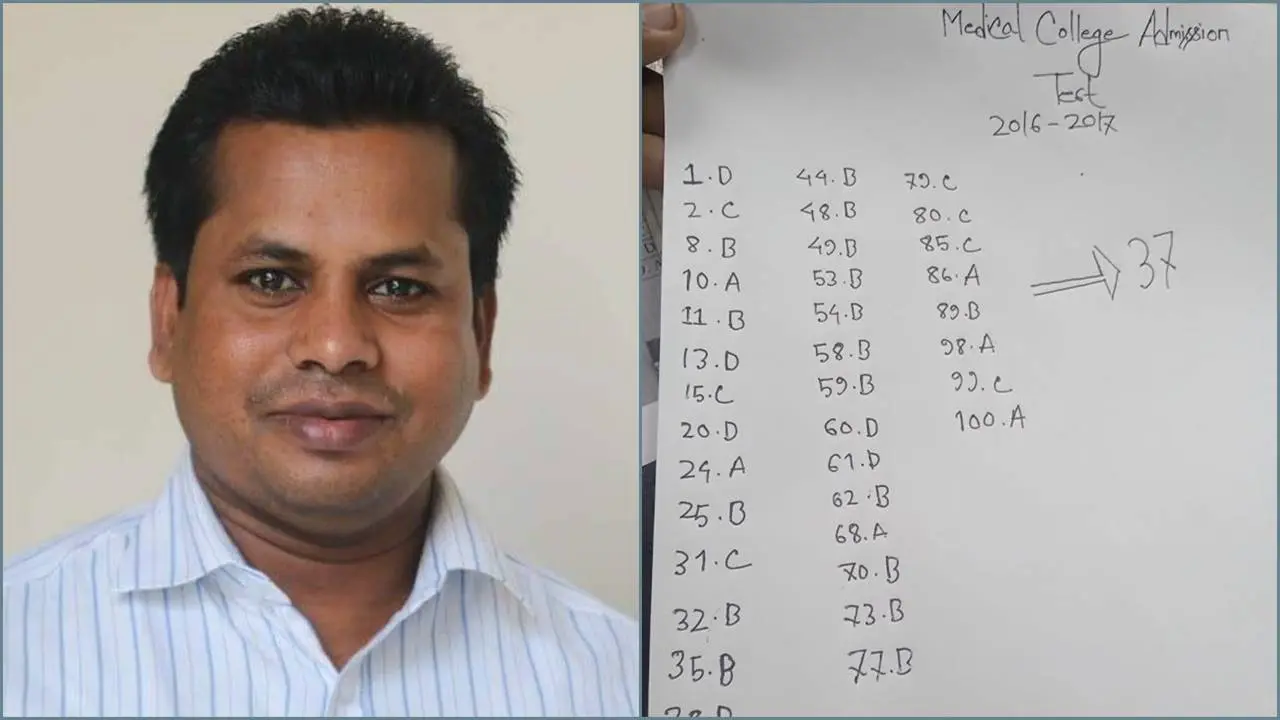 Medical College Admission
Test
2016-2017
1.D
2.C
8.B
10.A
11.B
13.D
15.C
20.D
24.A
25.B
31.C
32.B
35.B
44.B
48.B
49.B
53.B
54.B
58.B
59.B
60.D
61.D
62.B
68.A
70.B
73.B
77.B
79.C
80.C
85.C
86.A
89.B
98.A
99.C
100.A
37